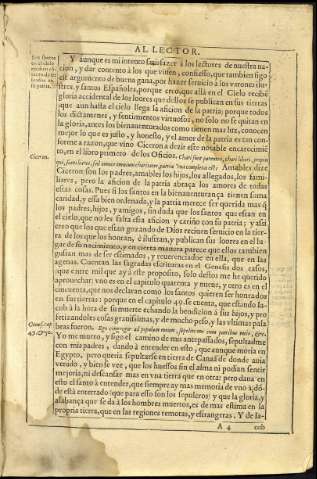 AL LECTOR.
Y aunque es mi intento satisfazer à los lectores de nuestra na-
cion, y dar contento à los que viuen, confiesso, que tambien sigo
este argumento de buena gana, por hazer seruicio à los varones ilus-
tres, y santos Españoles, porque creo, que allà en el Cielo recibē
gloria accidental de los loores que dellos se publican en sus tierras
que aun hasta el cielo llega la aficion de la patria; porque todos
los dictamenes, y sentimientos virtuosos, no solo no se quitan en
la gloria, antes los bienauenturados como tienen mas luz, conocen
mejor lo que es justo, y honesto, y el amor de la patria es tan con-
forme a razon, que vino Ciceron a dezir este notable encarecimiē
to, en el libro primero de los Oficios.
Ciceron.
Amables dize
Ciceron son los padres, amables los hijos, los allegados, los fami-
liares, pero la aficion de la patria abraça los amores de todas
estas cosas. Pues si los santos en la bienauenturança tienen santa
caridad, y essa bien ordenada, y la patria merece ser querida mas q̄
los padres, hijos, y amigos, sin duda que los santos que estan en
el cielo, que no les falta essa aficion y cariño con su patria; y assi
creo que los que estan gozando de Dios reciben seruicio en la tier
ra de los que los honran, è ilustran, y publican sus loores en el lu-
gar de su nacimiento; y en cierta manera parece que ellos tambien
gustan mas de ser estimados, y reuerenciados en ella, que en las
agenas. Cuentan las sagradas escrituras en el Genesis dos casos,
que entre mil que ay à este proposito, solo destos me he querido
aprouechar: vno es en el capitulo quarenta y nueue, y otro es en el
cincuenta, que nos declaran como los santos quieren ser honrados
en sus tierras: porque en el capitulo 49. se cuenta, que estando Ia-
cob à la hora de su muerte echando la bendicion à sus hijos, y pro
fetizandoles cosas grauissimas, y de mucho peso, y las vltimas pala
bras fueron. Ego congregor ad populum meum, sepelite me cum patribus meis, &c.
Genes. cap.
49. & 50.
Yo me muero, y sigo el camino de mis antepassados, sepultadme
con mis padres, dando à entender en esto, que aunque moria en
Egypto, pero queria sepultarse en tierra de Canaã de donde auia
venido, y bien se vee, que los huessos sin el alma ni podian sentir
mejoria, ni descansar mas en vna tierra que en otra: pero dana en
esto el santo à entender, que siempre ay mas memoria de vno à dō-
de està enterrado (que para esto son los sepulcros) y que la gloria, y
alabança que se dà à los hombres muertos, es de mas estima en la
propria tierra, que en las regiones remotas, y estrangeras. Y de la-
A 4 cob